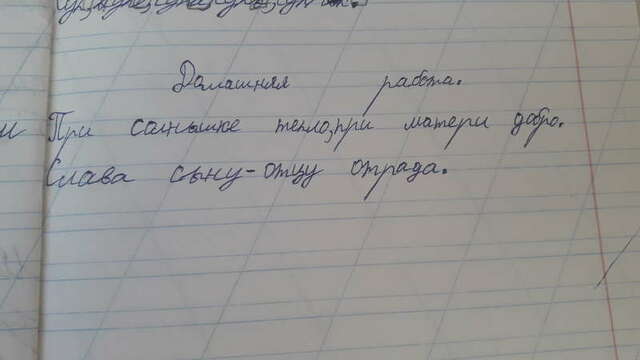 Домашняя работа.
При солнышке тепло, при матери добро.
Слава сыну - отцу отрада.